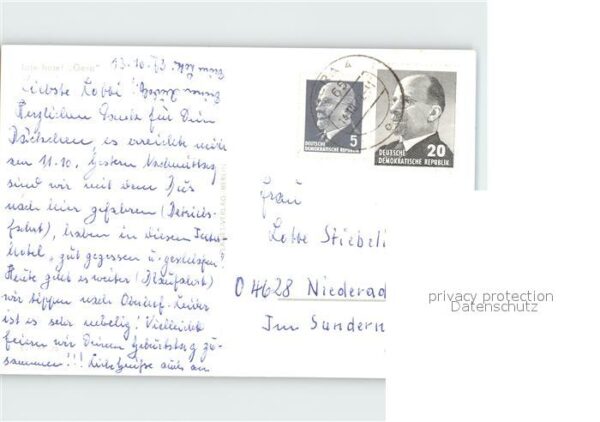 Interhotel „Gera“
13.10.73
Liebste Lobbi!
Herzlichen Dank für Dein
Päckchen, es erreichte mich
am 11.10. Gestern Nachmittag
sind wir mit dem Bus
nach hier gefahren (Betriebs-
fahrt), haben in diesem Inter-
hotel gut gegessen u. geschlafen.
Heute geht es weiter (Blaufahrt)
wir tippen nach Oberhof. Leider
ist es sehr nebelig! Vielleicht
feiern wir Deinen Geburtstag zu-
sammen!!! Liebe Grüße
5
DEUTSCHE
DEMOKRATISCHE REPUBLIK
DEUTSCHE 20
DEMOKRATISCHE REPUBLIK
Frau
Lobbe Stiebeli
D 4628 Niederad
Im Sundern
privacy protection
Datenschutz